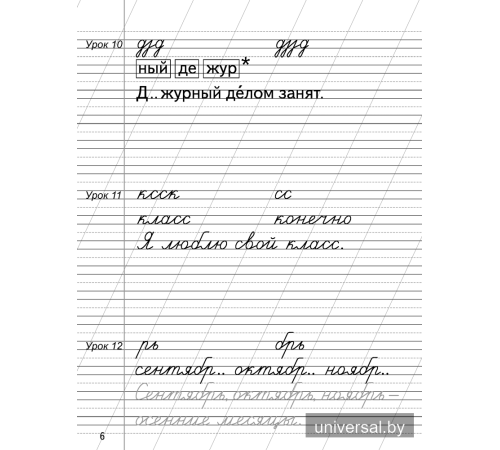 Урок 10 дуд друд
ный де жур*
Д.. журный де́лом занят.
Урок 11 ксск сс
класс конечно
Я люблю свой класс.
Урок 12 рь брь
сентябр.. октябр.. ноябр..
Сентябрь, октябрь, ноябрь –
осенние месяцы.
universal.by
6